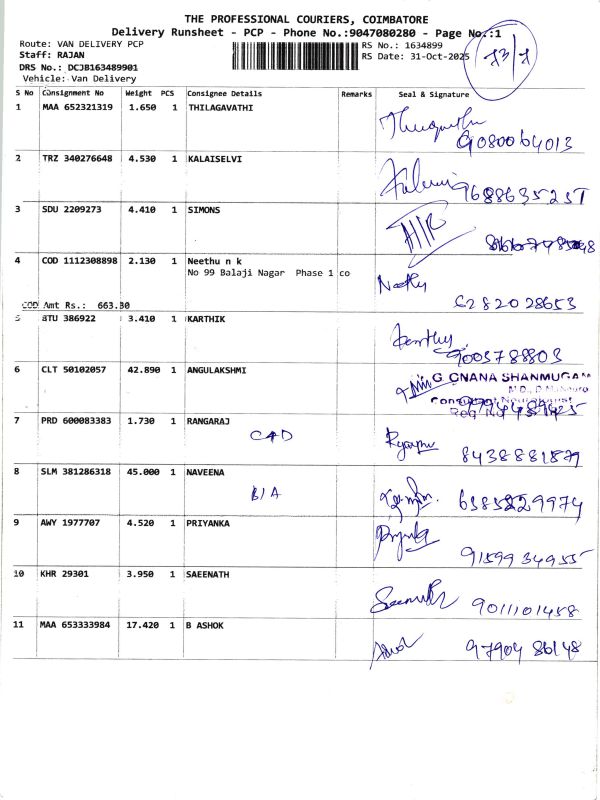 THE PROFESSIONAL COURIERS, COIMBATORE
Delivery Runsheet - PCP - Phone No.:9047080280 - Page No.:1
Route: VAN DELIVERY PCP RS No.: 1634899
Staff: RAJAN RS Date: 31-Oct-2025
DRS No.: DCJB163489901
Vehicle: Van Delivery
S No Consignment No Weight PCS Consignee Details Remarks Seal & Signature
1 MAA 652321319 1.650 1 THILAGAVATHI
9080064013
2 TRZ 340276648 4.530 1 KALAISELVI
9688635237
3 SDU 2209273 4.410 1 SIMONS
4 COD 1112308898 2.130 1 Neethu n k
No 99 Balaji Nagar Phase 1 co
Neethu
6282028653
COD Amt Rs.: 663.30
5 BTU 386922 3.410 1 KARTHIK
Karthy
9003788803
6 CLT 50102057 42.890 1 ANGULAKSHMI
G GNANA SHANMUGAM
7 PRD 600083383 1.730 1 RANGARAJ
8438881879
8 SLM 381286318 45.000 1 NAVEENA
9 AWY 1977707 4.520 1 PRIYANKA
9159934955
10 KHR 29301 3.950 1 SAEENATH
9011101458
11 MAA 653333984 17.420 1 B ASHOK
Ashok
9790486148